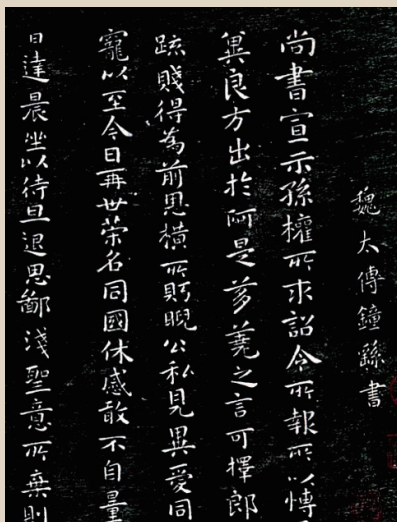 魏太傅鍾繇書
尚書宣示孫權所求詔令所報所以博
冀良方出於阿是芻蕘之言可擇郎
踈賤得為前恩橫所眄睨公私見異愛同
寵以至今日再世榮名同國休慼敢不自量
日達晨坐以待旦退思鄙淺聖意所棄則